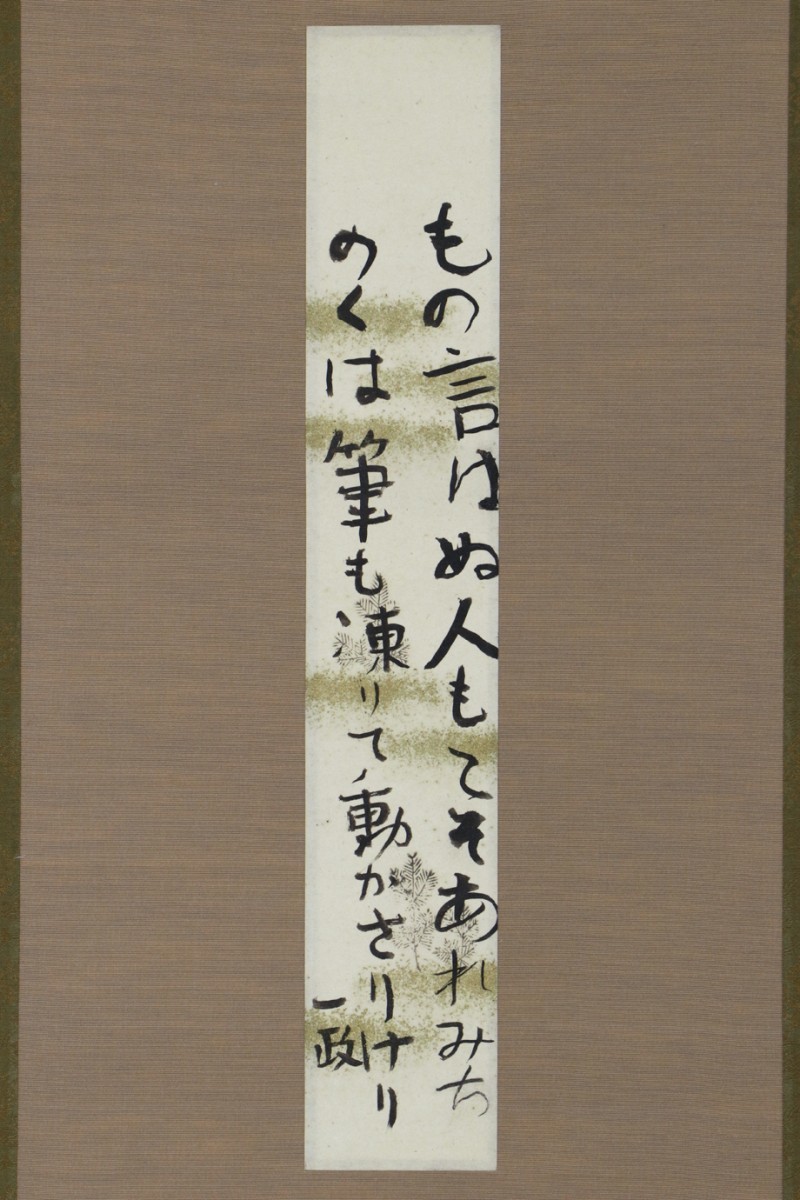 もの言はぬ人もこそあれみち
のくは筆も凍りて動かさりけり
一政